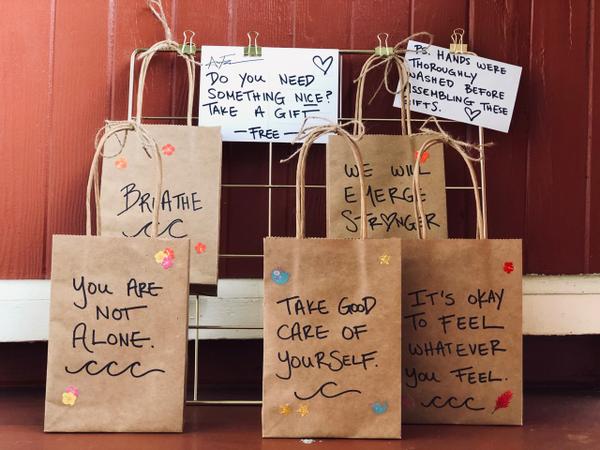 DO YOU NEED
SOMETHING NICE?
TAKE A GIFT
- FREE -
PS. HANDS WERE
THOROUGHLY
WASHED BEFORE
ASSEMBLING THESE
GIFTS.
BREATHE
WE WILL
EMERGE
STRONGER
YOU ARE
NOT
ALONE.
TAKE GOOD
CARE OF
YOURSELF.
IT'S OKAY
TO FEEL
WHATEVER
YOU FEEL.